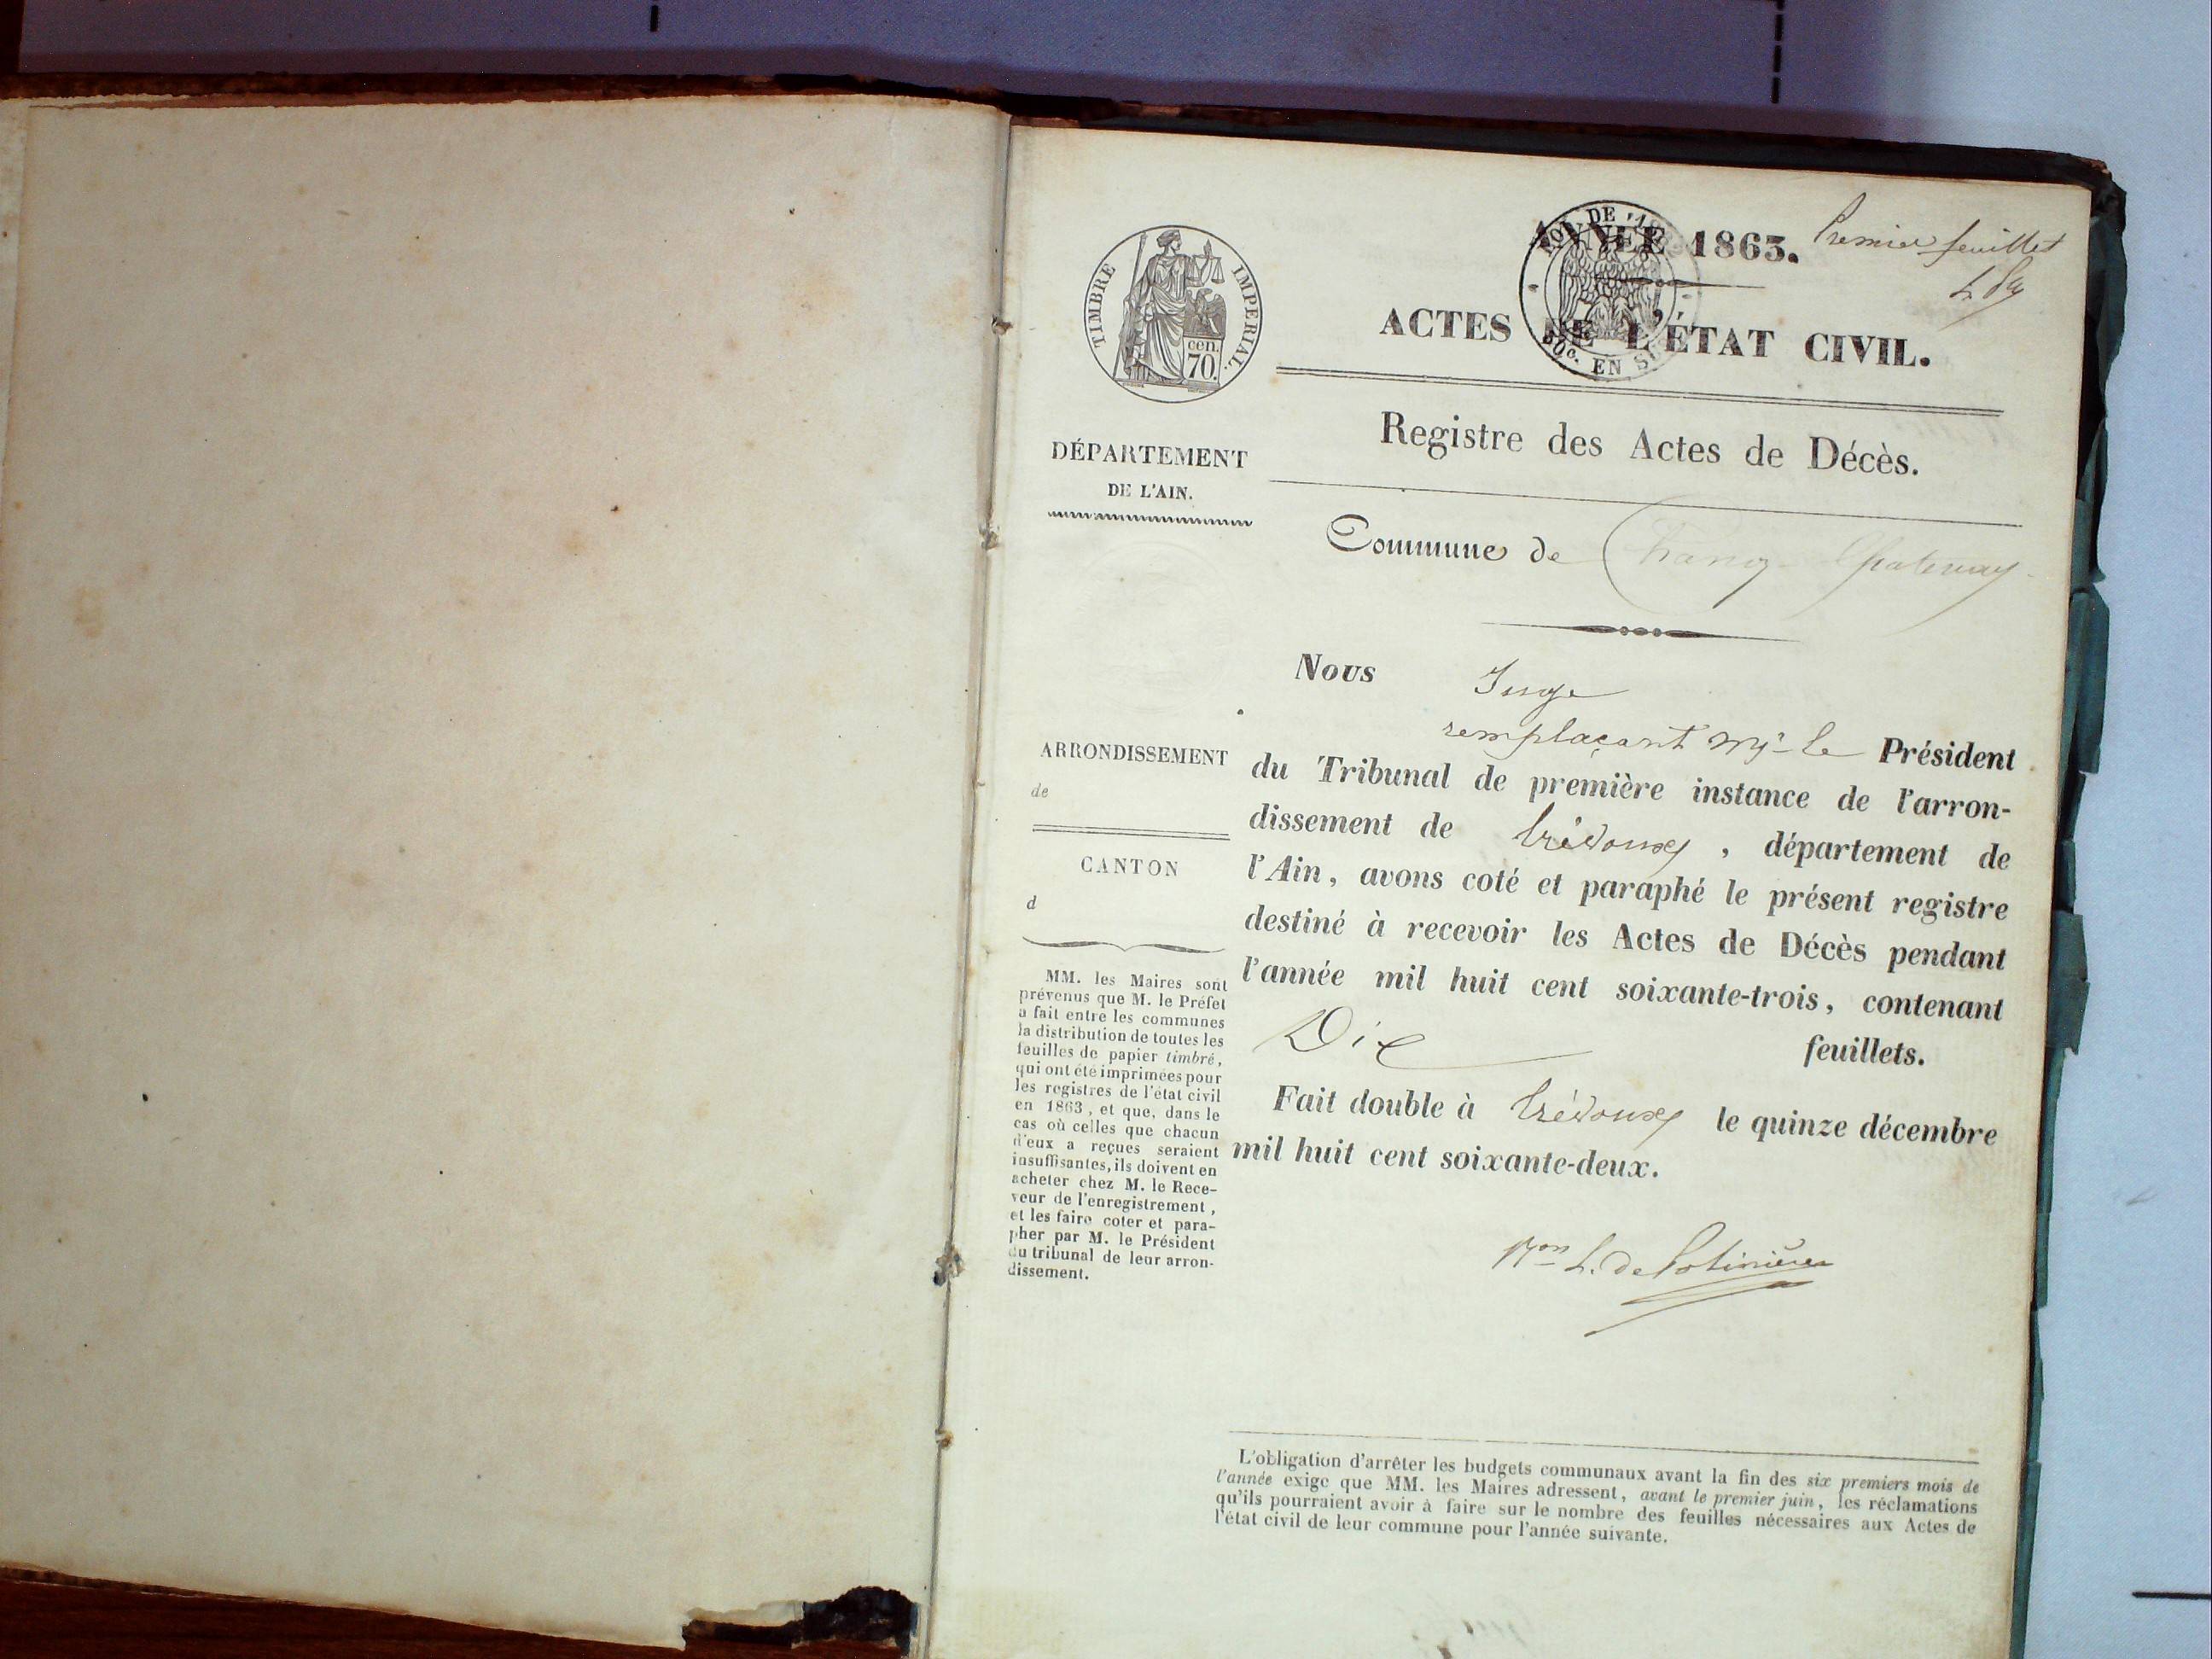 TIMBRE IMPERIAL.
cen.
70.
ANNÉE 1863.
LOI DE
50c. EN S
Premier feuillet
ACTES DE L'ÉTAT CIVIL.
Registre des Actes de Décès.
DÉPARTEMENT
DE L'AIN.
Commune de Chanoz Chatenay
Nous Juge
remplaçant Mr le Président
du Tribunal de première instance de l'arron-
dissement de trévoux, département de
l'Ain, avons coté et paraphé le présent registre
destiné à recevoir les Actes de Décès pendant
l'année mil huit cent soixante-trois, contenant
Dix feuillets.
Fait double à trévoux le quinze décembre
mil huit cent soixante-deux.
ARRONDISSEMENT
de
CANTON
d
MM. les Maires sont
prévenus que M. le Préfet
a fait entre les communes
la distribution de toutes les
feuilles de papier timbré,
qui ont été imprimées pour
les registres de l'état civil
en 1863, et que, dans le
cas où celles que chacun
d'eux a reçues seraient
insuffisantes, ils doivent en
acheter chez M. le Rece-
veur de l'enregistrement,
et les faire coter et para-
pher par M. le Président
du tribunal de leur arron-
dissement.
L'obligation d'arrêter les budgets communaux avant la fin des six premiers mois de
l'année exige que MM. les Maires adressent, avant le premier juin, les réclamations
qu'ils pourraient avoir à faire sur le nombre des feuilles nécessaires aux Actes de
l'état civil de leur commune pour l'année suivante.